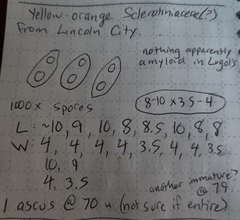 Yellow-orange Sclerotiniaceae(?)
from Lincoln City.
nothing apparently
amyloid in Lugol's
1000x spores
8-10 x 3.5-4
L: ~10, 9, 10, 8, 8.5, 10, 8, 8
W: 4, 4, 4, 4, 3.5, 4, 4, 3.5
10, 9
4, 3.5
another immature?
@ 79
1 ascus @ 70 u (not sure if entire)